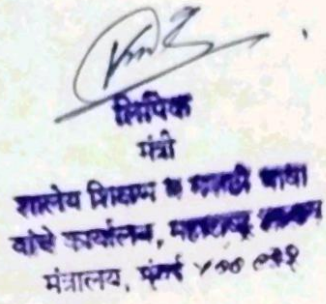 लिपिक
मंत्री
शालेय शिक्षण व मराठी भाषा
यांचे कार्यालय, महाराष्ट्र शासन
मंत्रालय, मुंबई ४०० ०३२